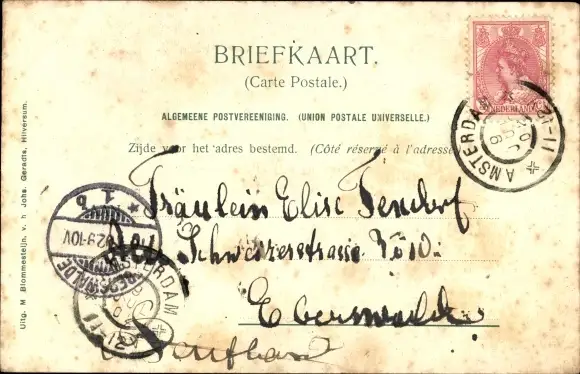 BRIEFKAART.
(Carte Postale.)
ALGEMEENE POSTVEREENIGING. (UNION POSTALE UNIVERSELLE.)
Zijde voor het adres bestemd. (Côté réservé à l'adresse)
NEDERLAND
AMSTERDAM
Fräulein Elise Fendorf
Schweizerstrasse
Eberswalde
EBERSWALDE
AMSTERDAM
Uitg. M. Blommestein, v. h. Johs. Geradts, Hilversum.